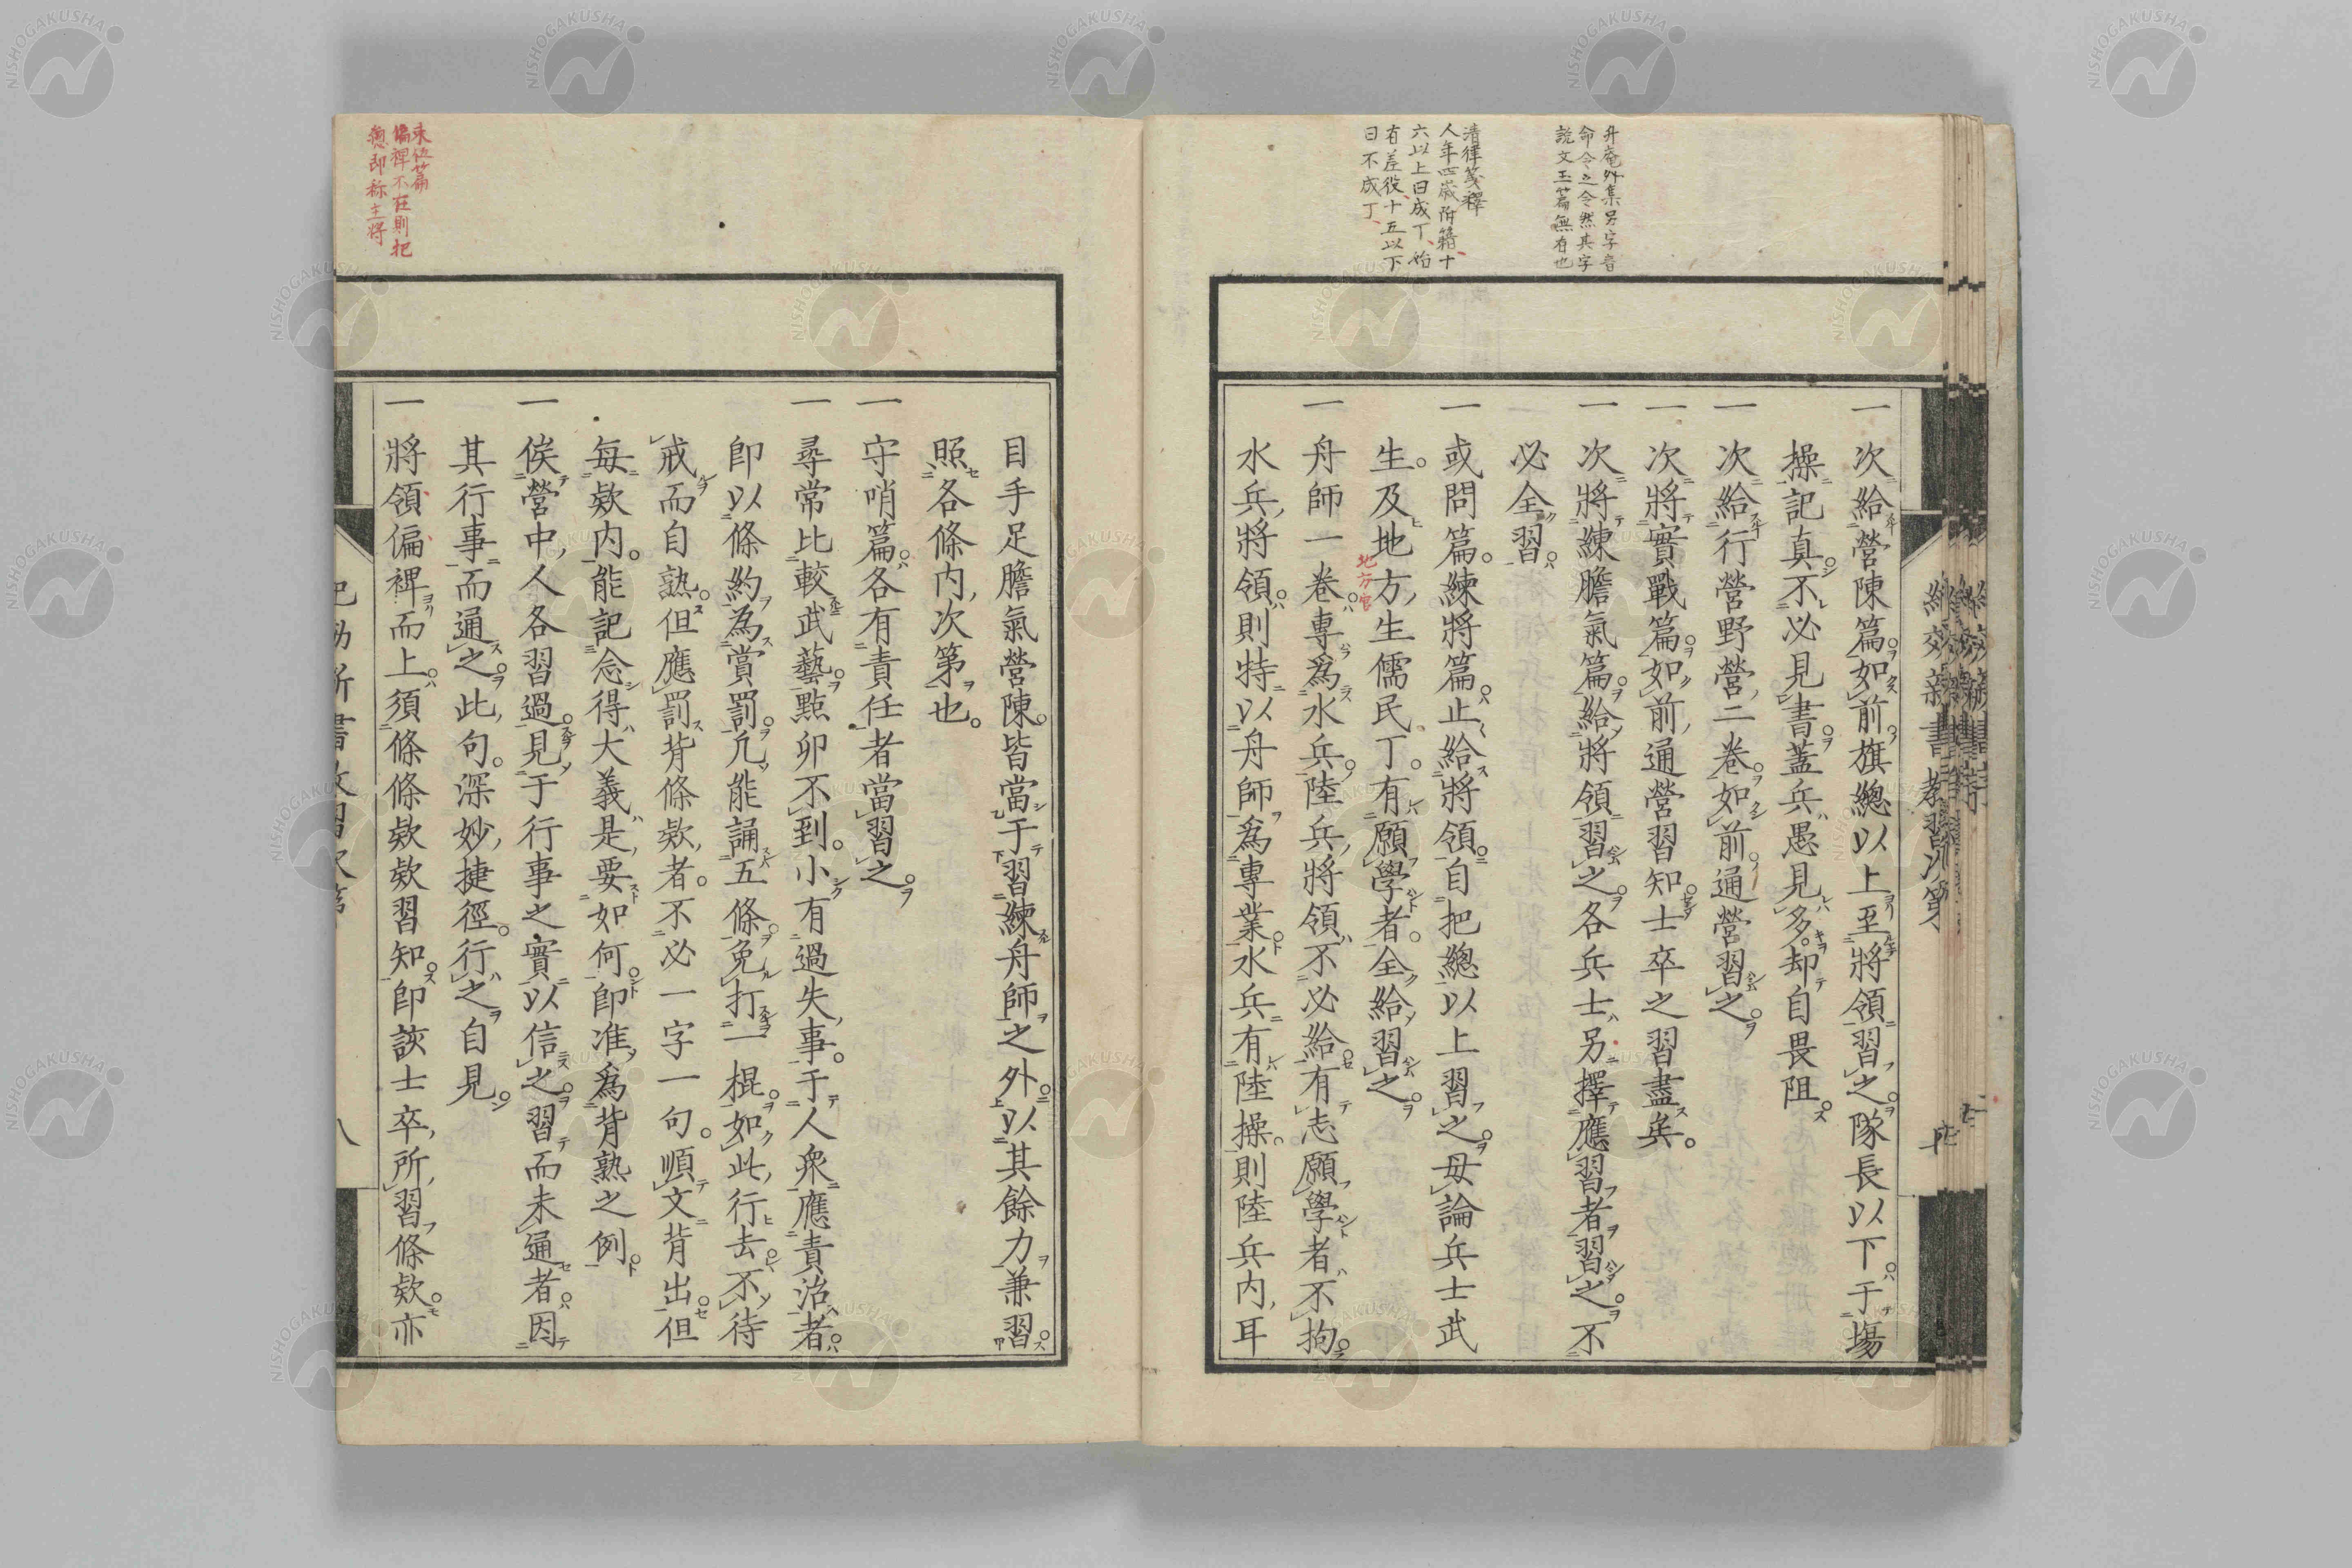 升庵外集另字音
命令之令然其字
說文玉篇無有也
清律箋釋
人年四歲附籍十
六以上曰成丁始
有差役十五以下
曰不成丁
一次給營陳篇如前旗總以上至將領習之隊長以下于場
操記真不必見書蓋兵愚見多却自畏阻
一次給行營野營二卷如前通營習之
一次將實戰篇如前通營習知士卒之習盡矣
一次將練膽氣篇給將領習之各兵士另擇應習者習之不
必全習
一或問篇練將篇止給將領自把總以上習之毋論兵士武
生及地方生儒民丁有願學者全給習之
地方官
一舟師一卷專爲水兵陸兵將領不必給有志願學者不拘
水兵將領則特以舟師爲專業水兵有陸操則陸兵内耳
目手足膽氣營陳皆當于習練舟師之外以其餘力兼習
照各條内次第也
一守哨篇各有責任者當習之
一尋常比較武藝點卯不到小有過失事于人衆應責治者
即以條約為賞罰凢能誦五條免打一棍如此行去不待
戒而自熟但應罰背條欵者不必一字一句順文背出但
每欵内能記念得大義是要如何即准爲背熟之例
一俟營中人各習過見于行事之實以信之習而未通者因
其行事而通之此句深妙捷徑行之自見
一將領偏裨而上須條條欵欵習知即該士卒所習條欵亦
束伍篇
偏裨不在則把
總即称主將
紀効新書教習次第
八
NISHOGAKUSHA